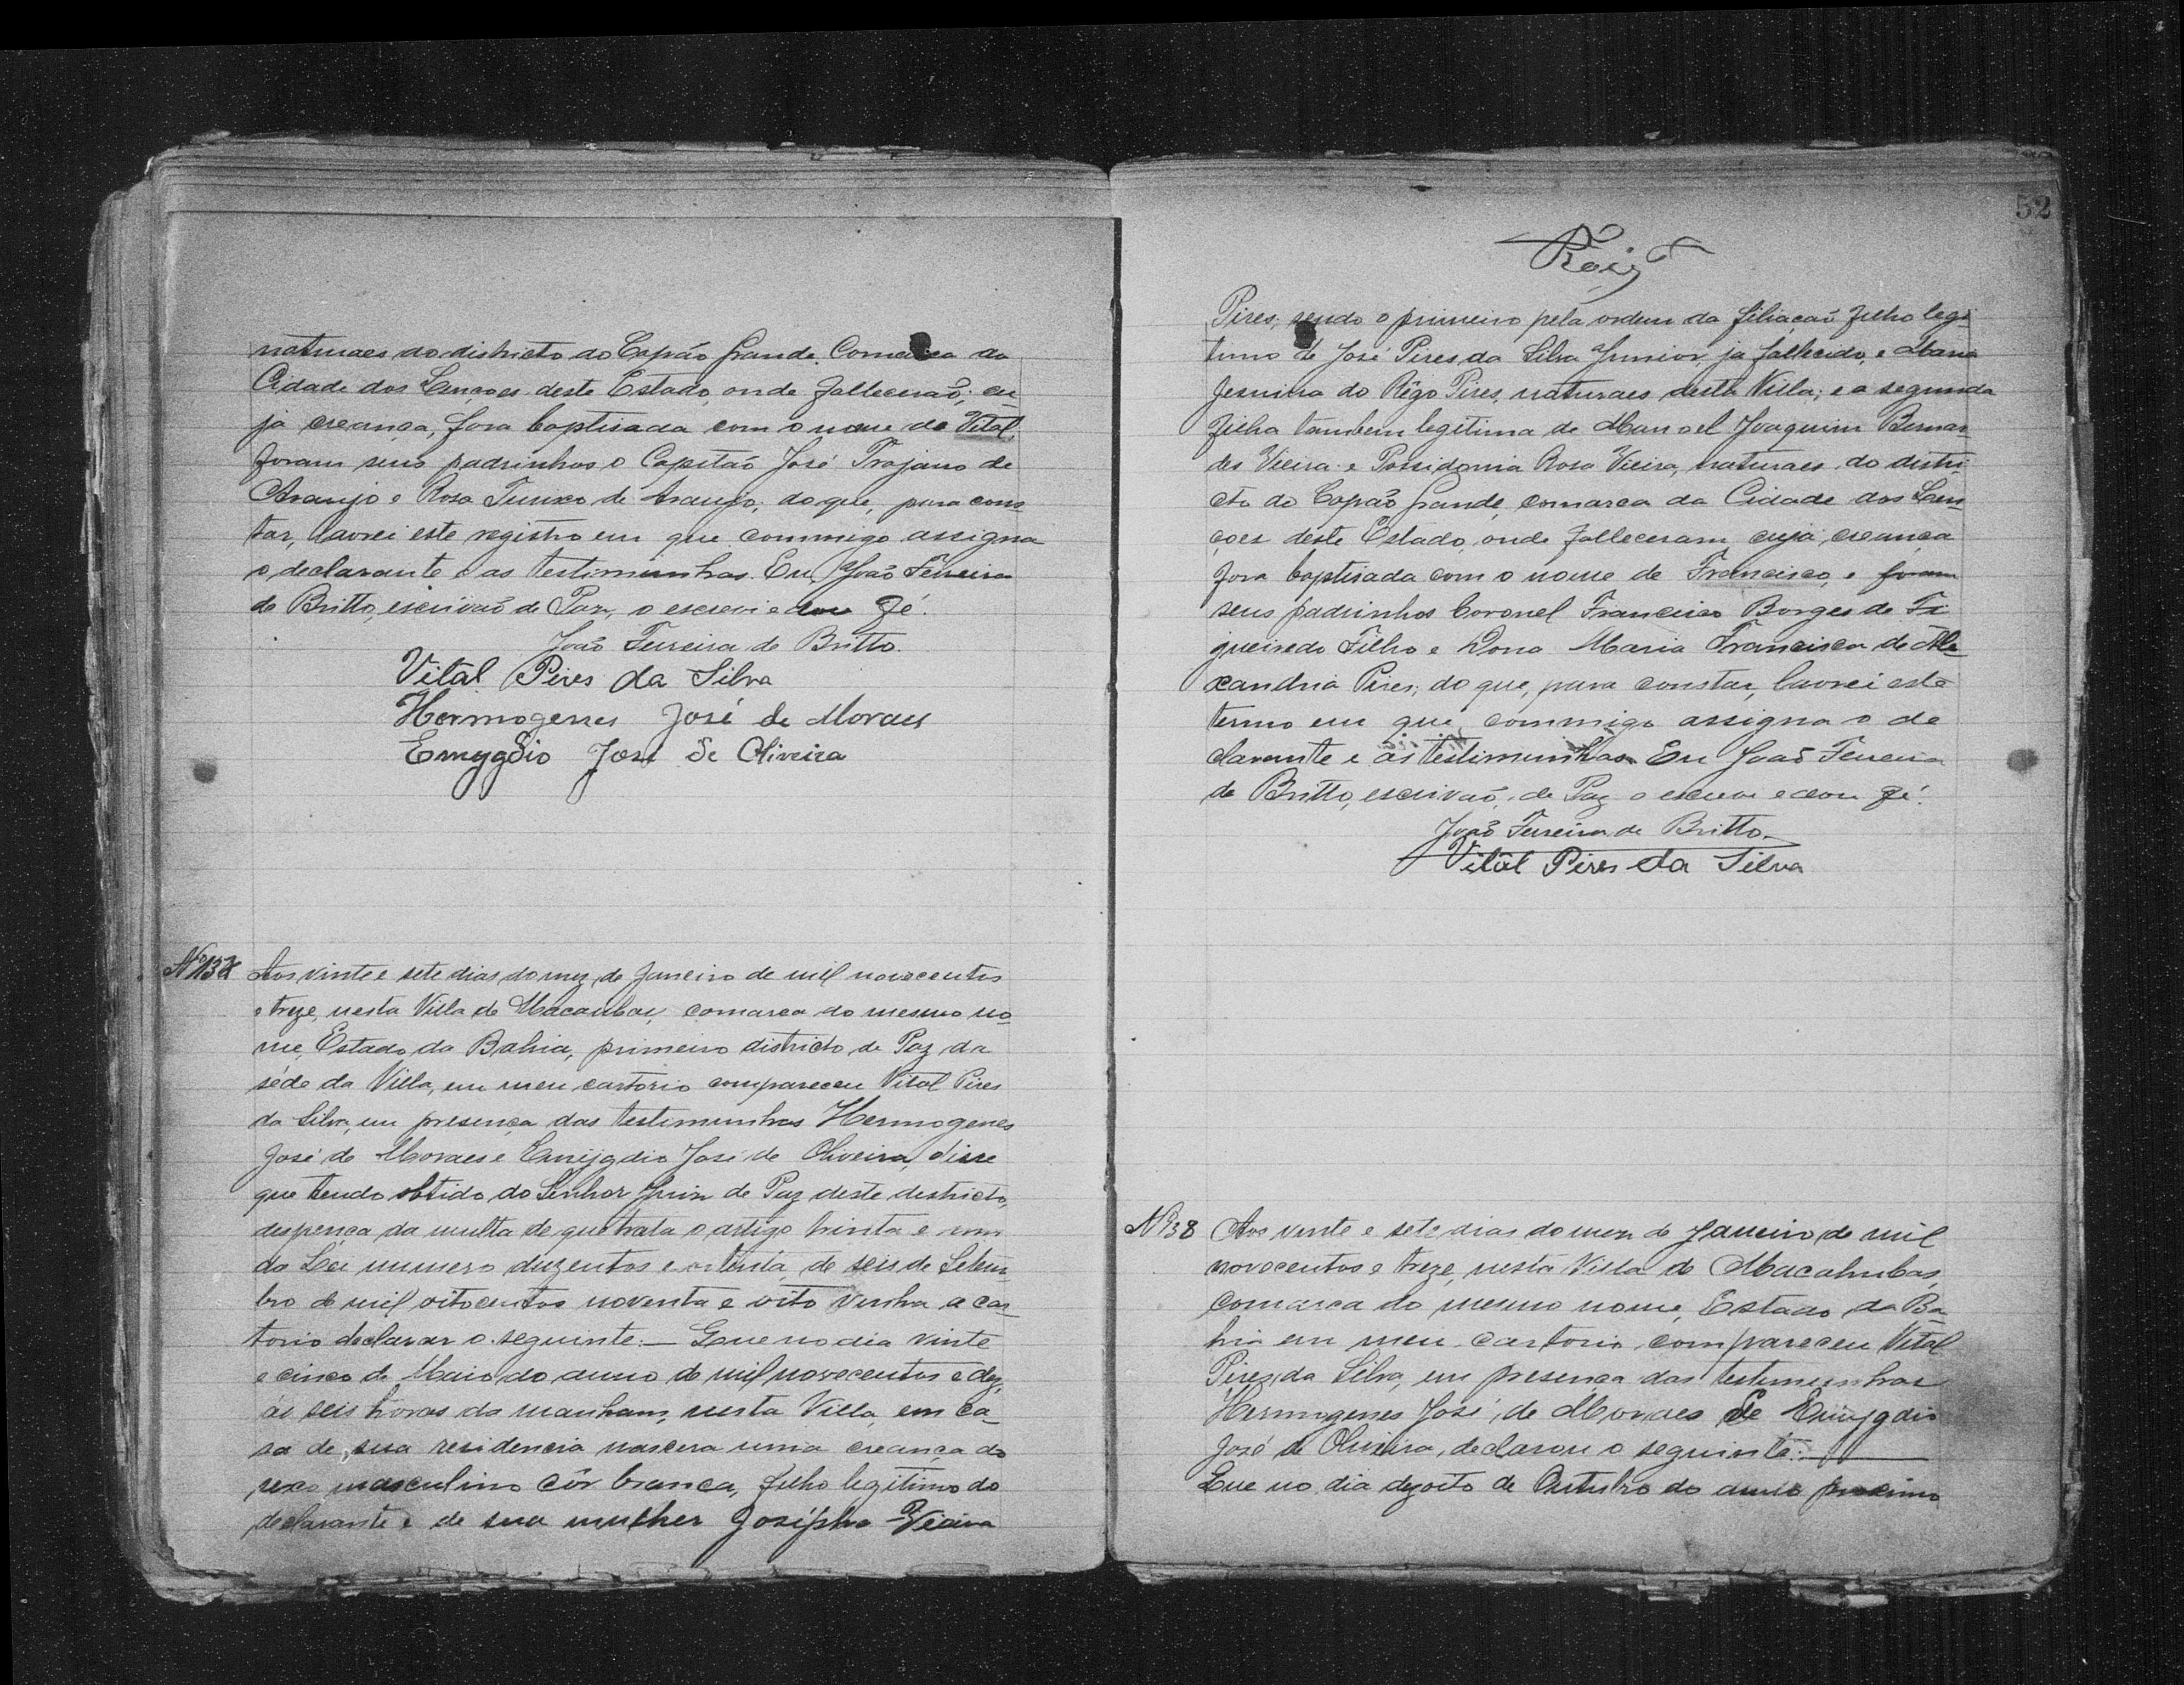 naturaes do districto do Capão Grande, Comarca da
Cidade dos Lençoes deste Estado, onde fallecerão; cu-
ja creança, fora baptisada com o nome de Vital,
foram seus padrinhos o Capitão José Trajano de
Araujo e Rosa de Araujo; do que, para cons-
tar, lavrei este registro em que commigo assigna
o declarante e as testimunhas. Eu, João Ferreira
de Britto, escrivão de Paz, o escrevi e dou fé.
João Ferreira de Britto.
Vital Pires da Silva
Hermogenes José de Moraes
Emygdio José de Oliveira
Nº 137 Aos vinte e sete dias do mez de Janeiro de mil novecentos
e treze, nesta Villa de Macaubas, comarca do mesmo no-
me, Estado da Bahia, primeiro districto de Paz da
séde da Villa, em meu cartorio compareceu Vital Pires
da Silva, em presença das testimunhas Hermogenes
José de Moraes e Emygdio José de Oliveira, disse
que tendo obtido do Senhor Juiz de Paz deste destricto,
despença da multa de que trata o artigo trinta e um
da Lei numero duzentos e oitenta, de seis de Setem-
bro de mil oitocentos noventa e oito vinha a car-
torio declarar o seguinte:— Que no dia vinte
e cinco de Maio do anno de mil novecentos e dez,
ás seis horas da manham, nesta Villa, em ca-
sa de sua residencia nascera uma creança do
sexo masculino côr branca, filho legitimo do
declarante e de sua mulher Josépha Vieira
52
Pires; sendo o primeiro pela ordem da filiação filho legi-
timo de José Pires da Silva Junior, já fallecido, e Maria
Jesuina do Rêgo Pires, naturaes desta Villa; e a segunda
filha tambem legitima de Manoel Joaquim Bernar-
des Vieira e Possidonia Rosa Vieira, naturaes do distri-
cto do Capão Grande, comarca da Cidade dos Len-
çoes deste Estado, onde falleceram, cuja creança
fora baptisada com o nome de Francisco, e foram
seus padrinhos Coronel Francisco Borges de Fi-
gueiredo Filho e Dona Maria Francisca de Ale-
xandria Pires; do que, para constar, lavrei este
termo em que commigo assigna o de-
clarante e as testimunhas. Eu João Ferreira
de Britto, escrivão de Paz o escrevi e dou fé.
João Ferreira de Britto.
Vital Pires da Silva
Nº 138 Aos vinte e sete dias do mez de Janeiro de mil
novecentos e treze, nesta Villa de Macahubas,
comarca do mesmo nome, Estado da Ba-
hia em meu cartorio compareceu Vital
Pires da Silva, em presença das testemunhas
Hermogenes José de Moraes e Emygdio
José de Oliveira, declarou o seguinte:—
Que no dia dezoito de Outubro do anno proximo